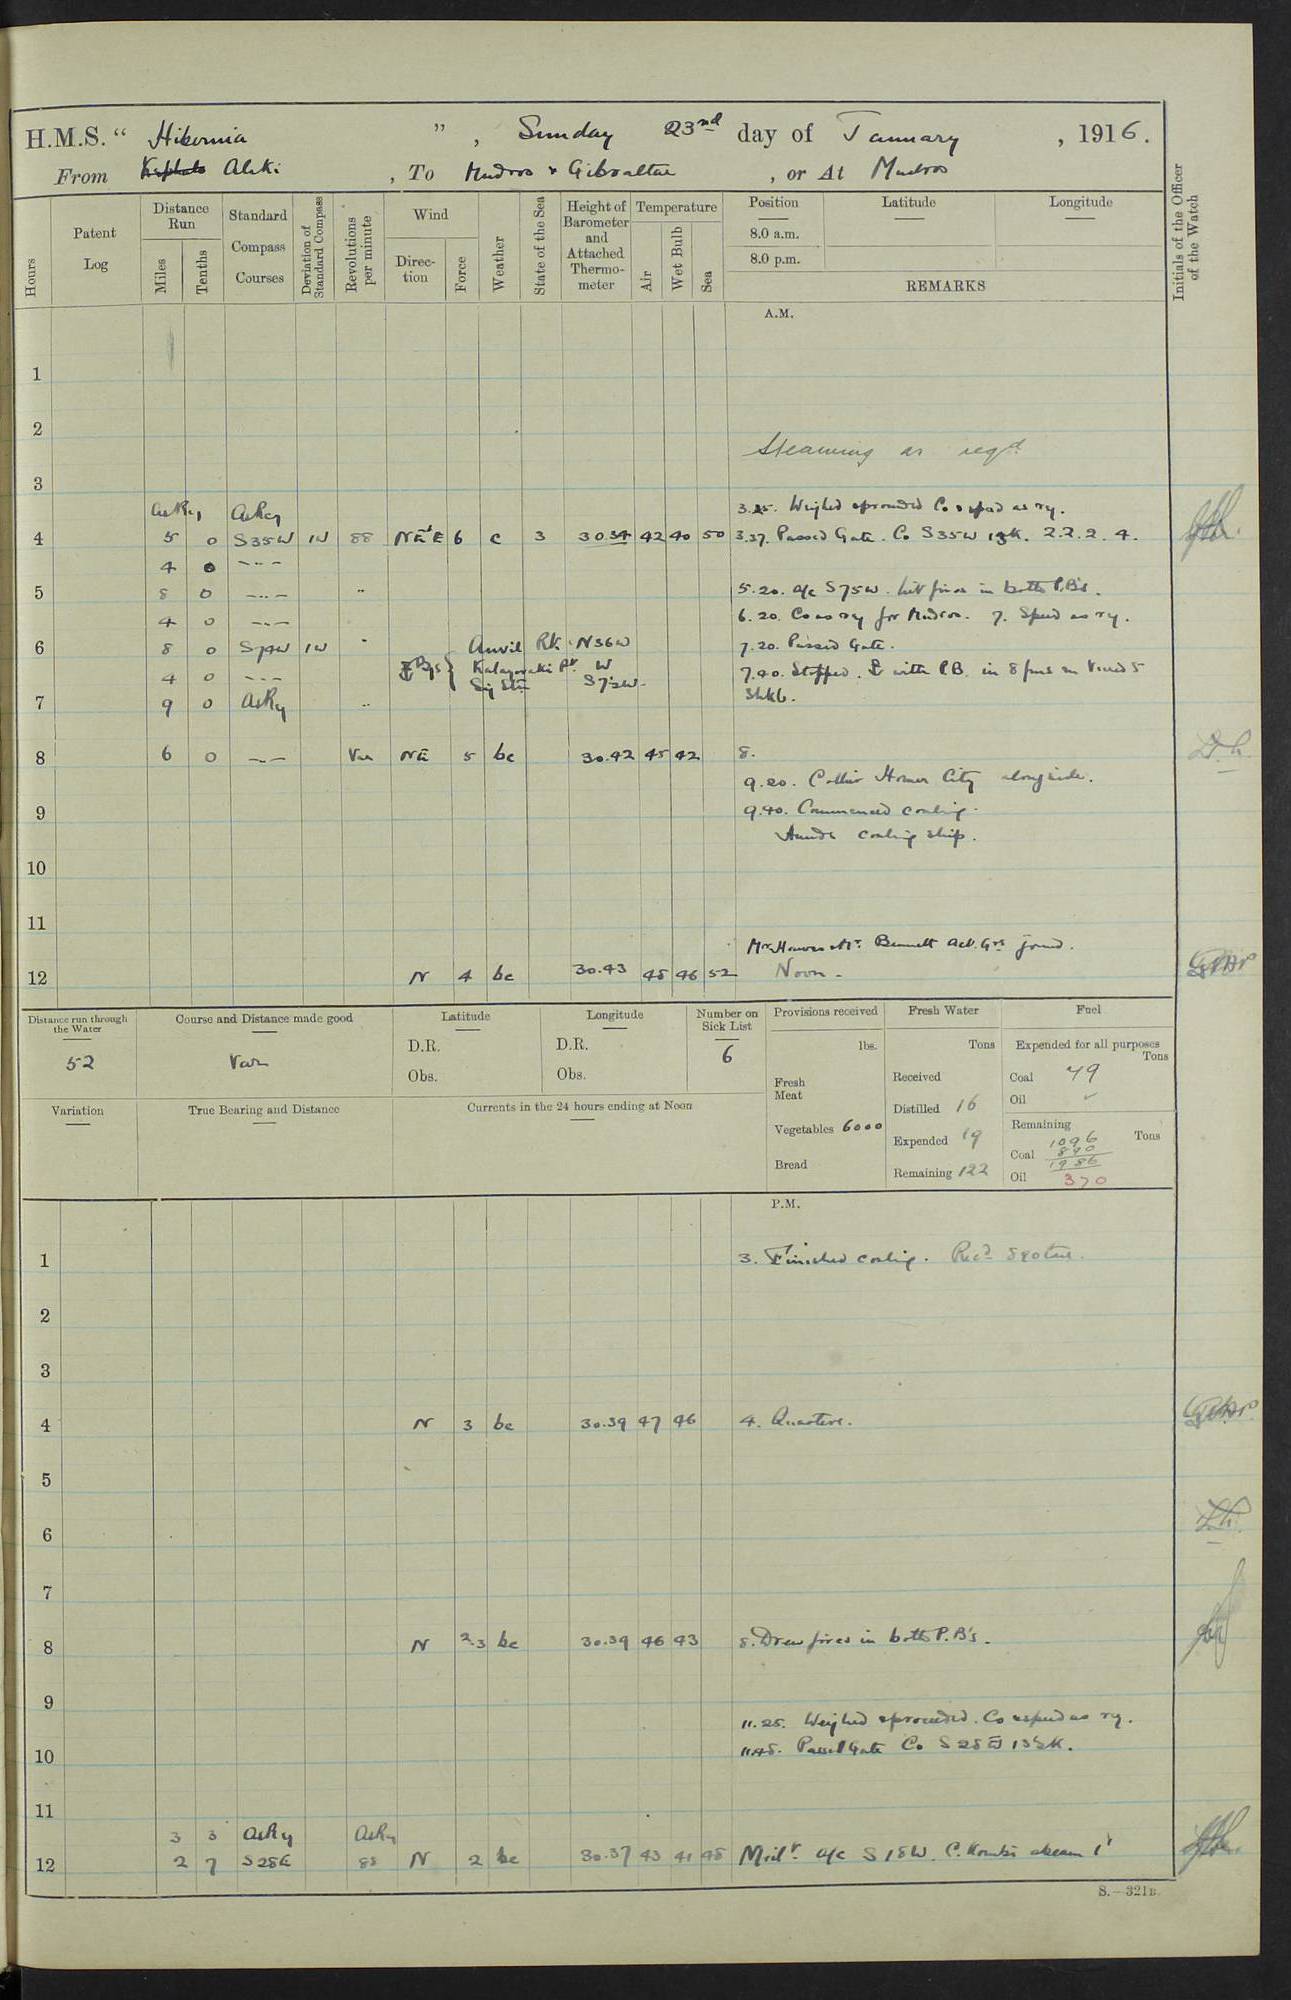 H.M.S. " Hibernia ", Sunday 23rd day of January, 1916.
From Kephalo Aliki, To Mudros & Gibraltar, or At Mudros
Hours
Patent Log
Distance Run
Miles
Tenths
Standard Compass Courses
Deviation of Standard Compass
Revolutions per minute
Wind
Direction
Force
Weather
State of the Sea
Height of Barometer and Attached Thermometer
Temperature
Air
Wet Bulb
Sea
Position
8.0 a.m.
8.0 p.m.
Latitude
Longitude
REMARKS
Initials of the Officer of the Watch
A.M.
1
2
Steaming as reqd
3
AsRq AsRq 3.25. Weighed & proceeded Co & speed as rq.
4 5 0 S35W 1W 88 NE'E 6 c 3 30.34 42 40 50 3.37. Passed Gate. Co S35W 13K. 2.2.2.4.
4 0 -..-
5 8 0 -..- .. 5.20. a/c S75W. Lit fires in both P.B's.
4 0 -..- 6.20. Co as rq for Mudros. 7. Speed as rq.
6 8 0 S74W 1W .. Anvil Rk. N36W 7.20. Passed Gate.
4 0 -..- Bgs { W 7.40. Stopped. with P.B. in 8 fms
Sig Stn S72W. Shk6.
7 9 0 AsRq ..
8 6 0 -..- Var NE 5 bc 30.42 45 42 8.
9.20. Collier Homer City alongside.
9 9.40. Commenced coaling.
Hands coaling ship.
10
11
Bennett Act. Grs joined.
12 N 4 bc 30.43 48 46 52 Noon.
Distance run through the Water
52
Course and Distance made good
Var
Latitude
D.R.
Obs.
Longitude
D.R.
Obs.
Number on Sick List
6
Provisions received
lbs.
Fresh Meat
Vegetables 6000
Bread
Fresh Water
Tons
Received
Distilled 16
Expended 19
Remaining 122
Fuel
Expended for all purposes
Tons
Coal 79
Oil
Remaining
Tons
1096
Coal 890
1986
Oil 370
Variation
True Bearing and Distance
Currents in the 24 hours ending at Noon
P.M.
1 3. Finished coaling. Recd 890 tons.
2
3
4 N 3 bc 30.39 47 46 4. Quarters.
5
6
7
8 N 2.3 bc 30.39 46 43 8. Drew fires in both P.B's.
9
11.25. Weighed & proceeded. Co & speed as rq.
10 11.48. Passed Gate Co S28E 13½K.
11
3 3 AsRq AsRq
12 2 7 S28E 88 N 2 bc 30.37 43 41 48 a/c S18W. C. Kombi abeam 1'
S.—321B.